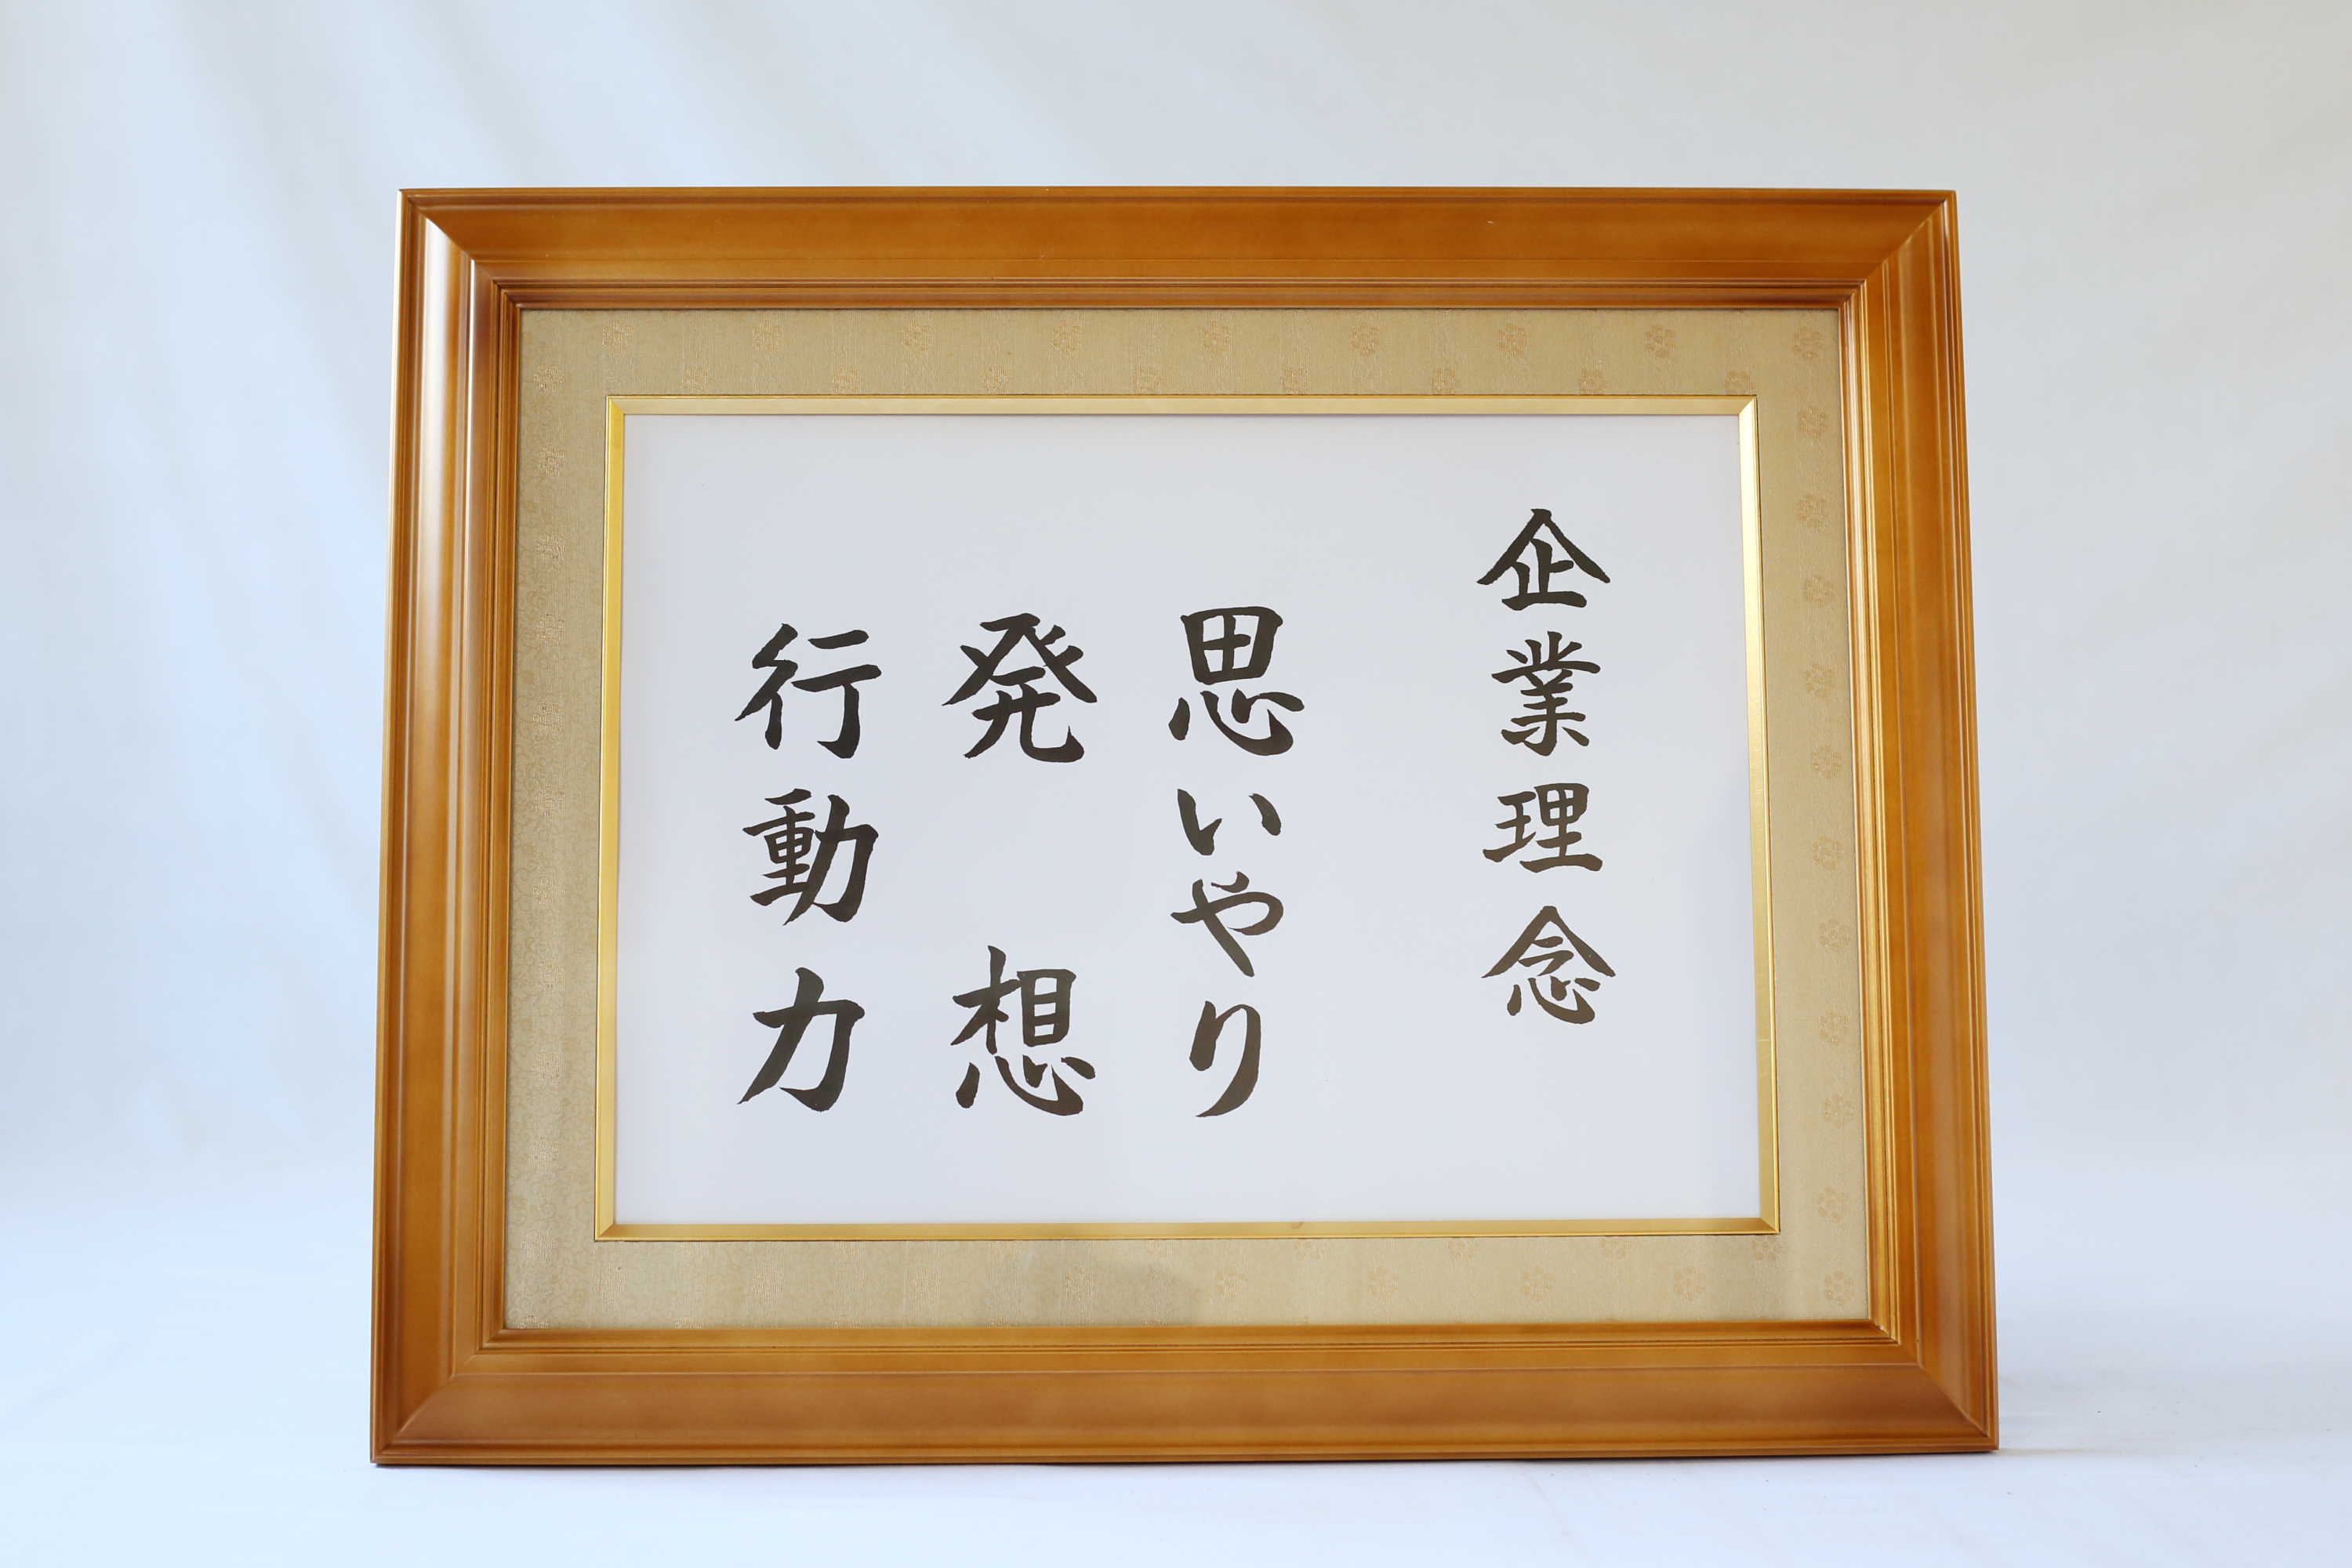 企業理念
思いやり
発想
行動力